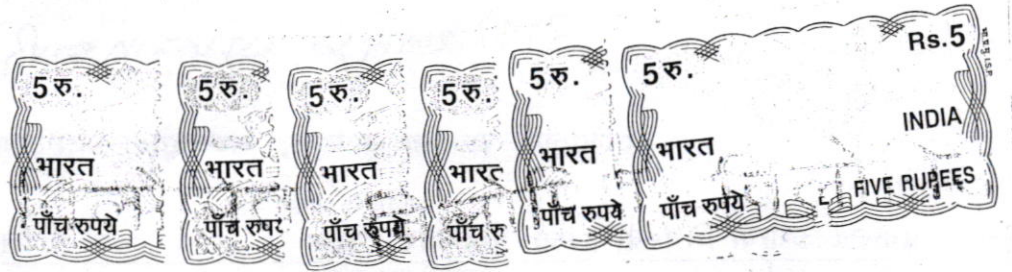 5 रु.
भारत
पाँच रुपये
5 रु.
भारत
पाँच रुपए
5 रु.
भारत
पाँच रुपये
5 रु.
भारत
पाँच रु
5 रु.
भारत
पाँच रुपये
5 रु. Rs.5
भारत INDIA
पाँच रुपये FIVE RUPEES